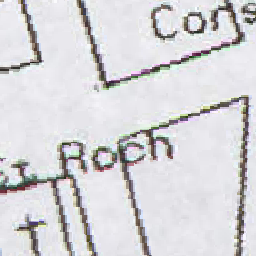 Cons
St Roch